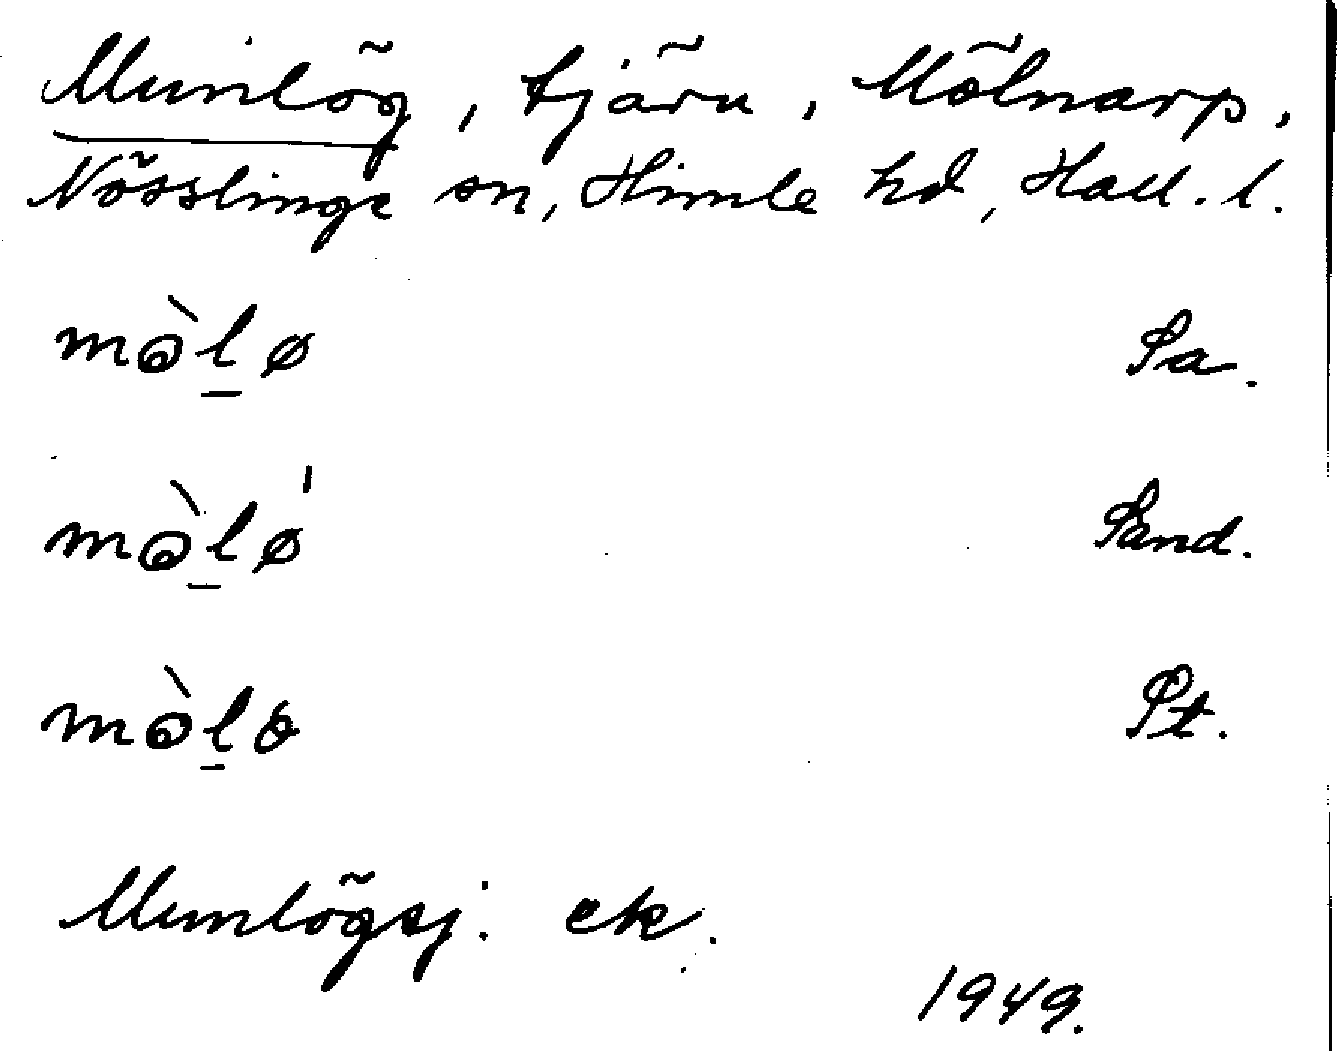 Munlög, tjärn, Mölnarp,
Nösslinge sn, Himle hd, Hall. l.
mòlø Sa.
mòlǿ Sand.
mòlo Pt.
Munlögsj: ek.
1949.